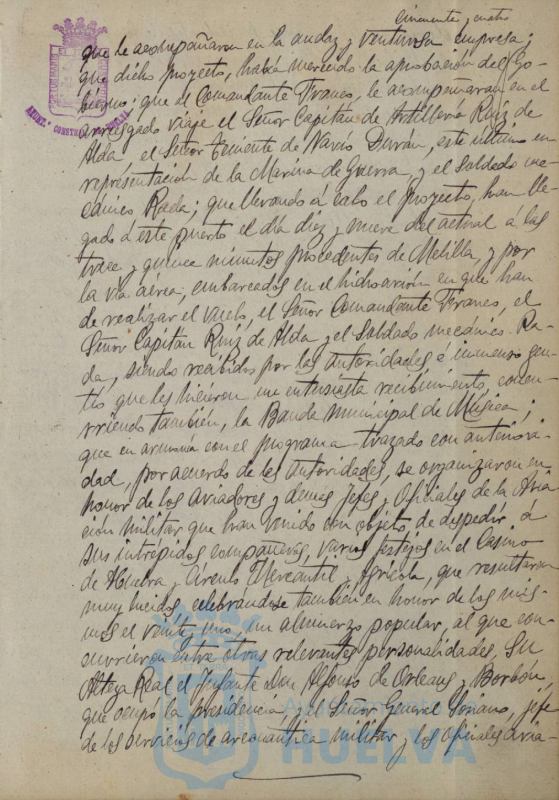 Cincuenta y cuatro
que le acompañaran en la audaz y venturosa empresa;
que dicho proyecto, había merecido la aprobación del Go-
bierno; que al Comandante Franco, le acompañaran en el
arriesgado viaje el Señor Capitán de Artillería Ruiz de
Alda el Señor Teniente de Navío Durán, este último en
representación de la Marina de Guerra, y el Soldado me-
cánico Rada; que llevando á cabo el proyecto, han lle-
gado á este puerto el día diez y nueve del actual á las
trece y quince minutos procedentes de Melilla, y por
la vía aérea, embarcados en el hidroavión en que han
de realizar el vuelo, el Señor Comandante Franco, el
Señor Capitán Ruiz de Alda y el Soldado mecánico Ra-
da, siendo recibidos por las autoridades é inmenso gen-
tío que les hicieron un entusiasta recibimiento, concu-
rriendo también, la Banda Municipal de Música;
que en armonía con el programa trazado con anteriori-
dad, por acuerdo de las Autoridades, se organizaron en
honor de los aviadores y demás jefes y Oficiales de la Avia-
ción militar que han venido con objeto de despedir á
sus intrépidos compañeros, varios festejos en el Casino
de Huelva y Círculo Mercantil y Agrícola, que resultaron
muy lucidos, celebrándose también en honor de los mis-
mos el veinte y uno, un almuerzo popular, al que con-
currieron entre otras relevantes personalidades, Su
Alteza Real el Infante Don Alfonso de Orleans y Borbón,
que ocupó la presidencia, y el Señor General Soriano, jefe
de los servicios de aeronáutica militar, y los oficiales avia-
HUELVA